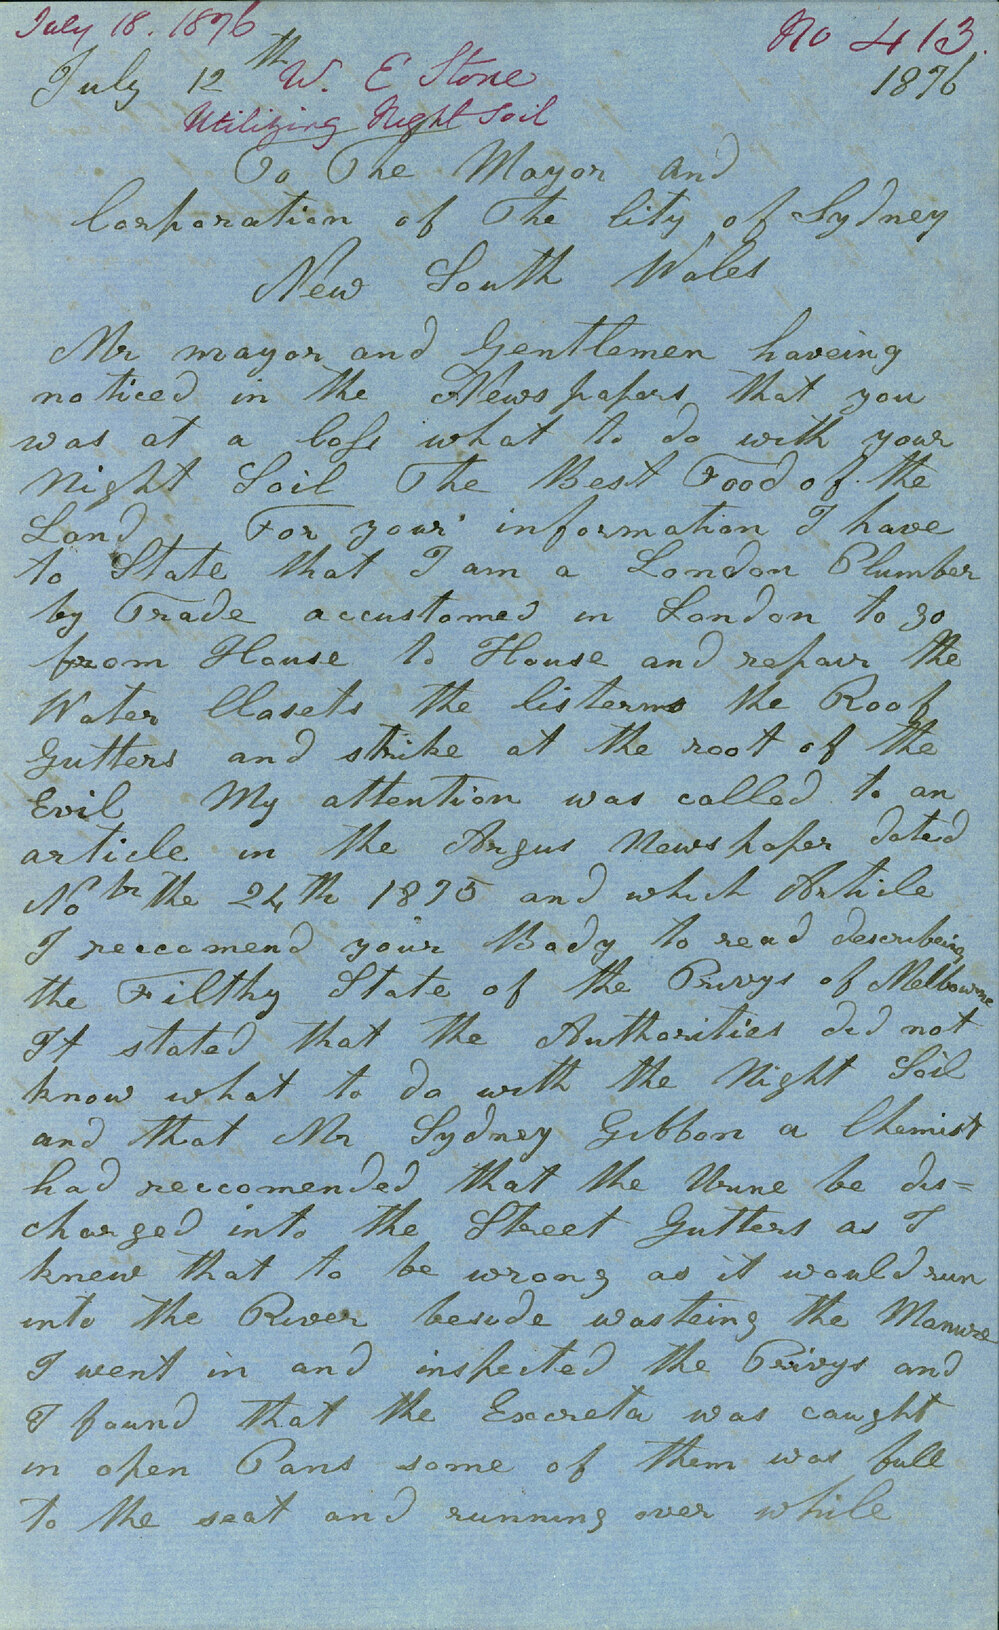 July 18. 1876 No 413.
July 12th W. E Stone 1876
Utilizing Night Soil
To The Mayor and
Corporation of The City of Sydney
New South Wales
Mr mayor and Gentlemen haveing
noticed in the News papers that you
was at a loss what to do with your
Night Soil The Best Food of the
Land For your information I have
to State that I am a London Plumber
by Trade accustomed in London to go
from House to House and repair the
Water Closets the Cisterns the Roof
Gutters and strike at the root of the
Evil My attention was called to an
article in the Argus Newspaper dated
Nobr the 24th 1875 and which Article
I reccomend your Body to read describeing
the Filthy State of the Privys of Melbourne
It stated that the Authorities did not
know what to do with the Night Soil
and that Mr Sydney Gibbon a Chemist
had reccomended that the Urine be dis=
charged into the Street Gutters as I
knew that to be wrong as it would run
into the River beside wasteing the Manure
I went in and inspected the Privys and
I found that the Excreta was caught
in open Pans some of them was full
to the seat and running over while